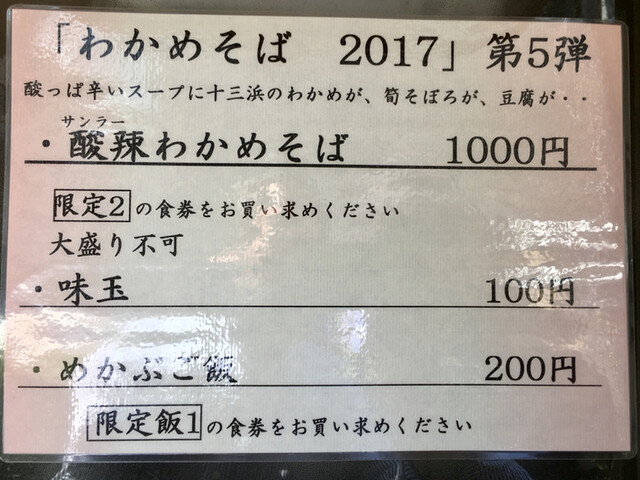 「わかめそば　2017」第5弾
酸っぱ辛いスープに十三浜のわかめが、筍そぼろが、豆腐が・・
サンラー
・酸辣わかめそば　1000円
限定2の食券をお買い求めください
大盛り不可
・味玉　100円
・めかぶご飯　200円
限定飯1の食券をお買い求めください